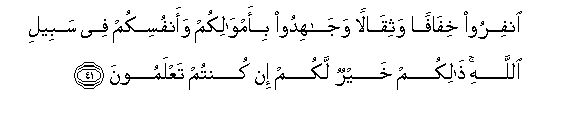 ٱنفِرُوا۟ خِفَافًۭا وَثِقَالًۭا وَجَـٰهِدُوا۟ بِأَمْوَٰلِكُمْ وَأَنفُسِكُمْ فِى سَبِيلِ
ٱللَّهِ ۚ ذَٰلِكُمْ خَيْرٌۭ لَّكُمْ إِن كُنتُمْ تَعْلَمُونَ ﴿٤١﴾